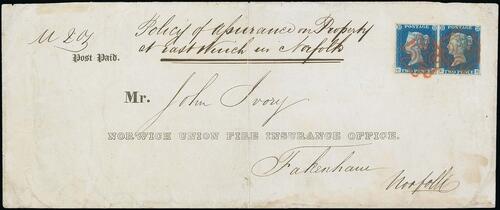 Policy of assurance on Property
at East Winch in Norfolk
Post Paid.
POSTAGE POSTAGE
TWO PENCE TWO PENCE
Mr. John Ivory
NORWICH UNION FIRE INSURANCE OFFICE.
Fakenham
Norfolk